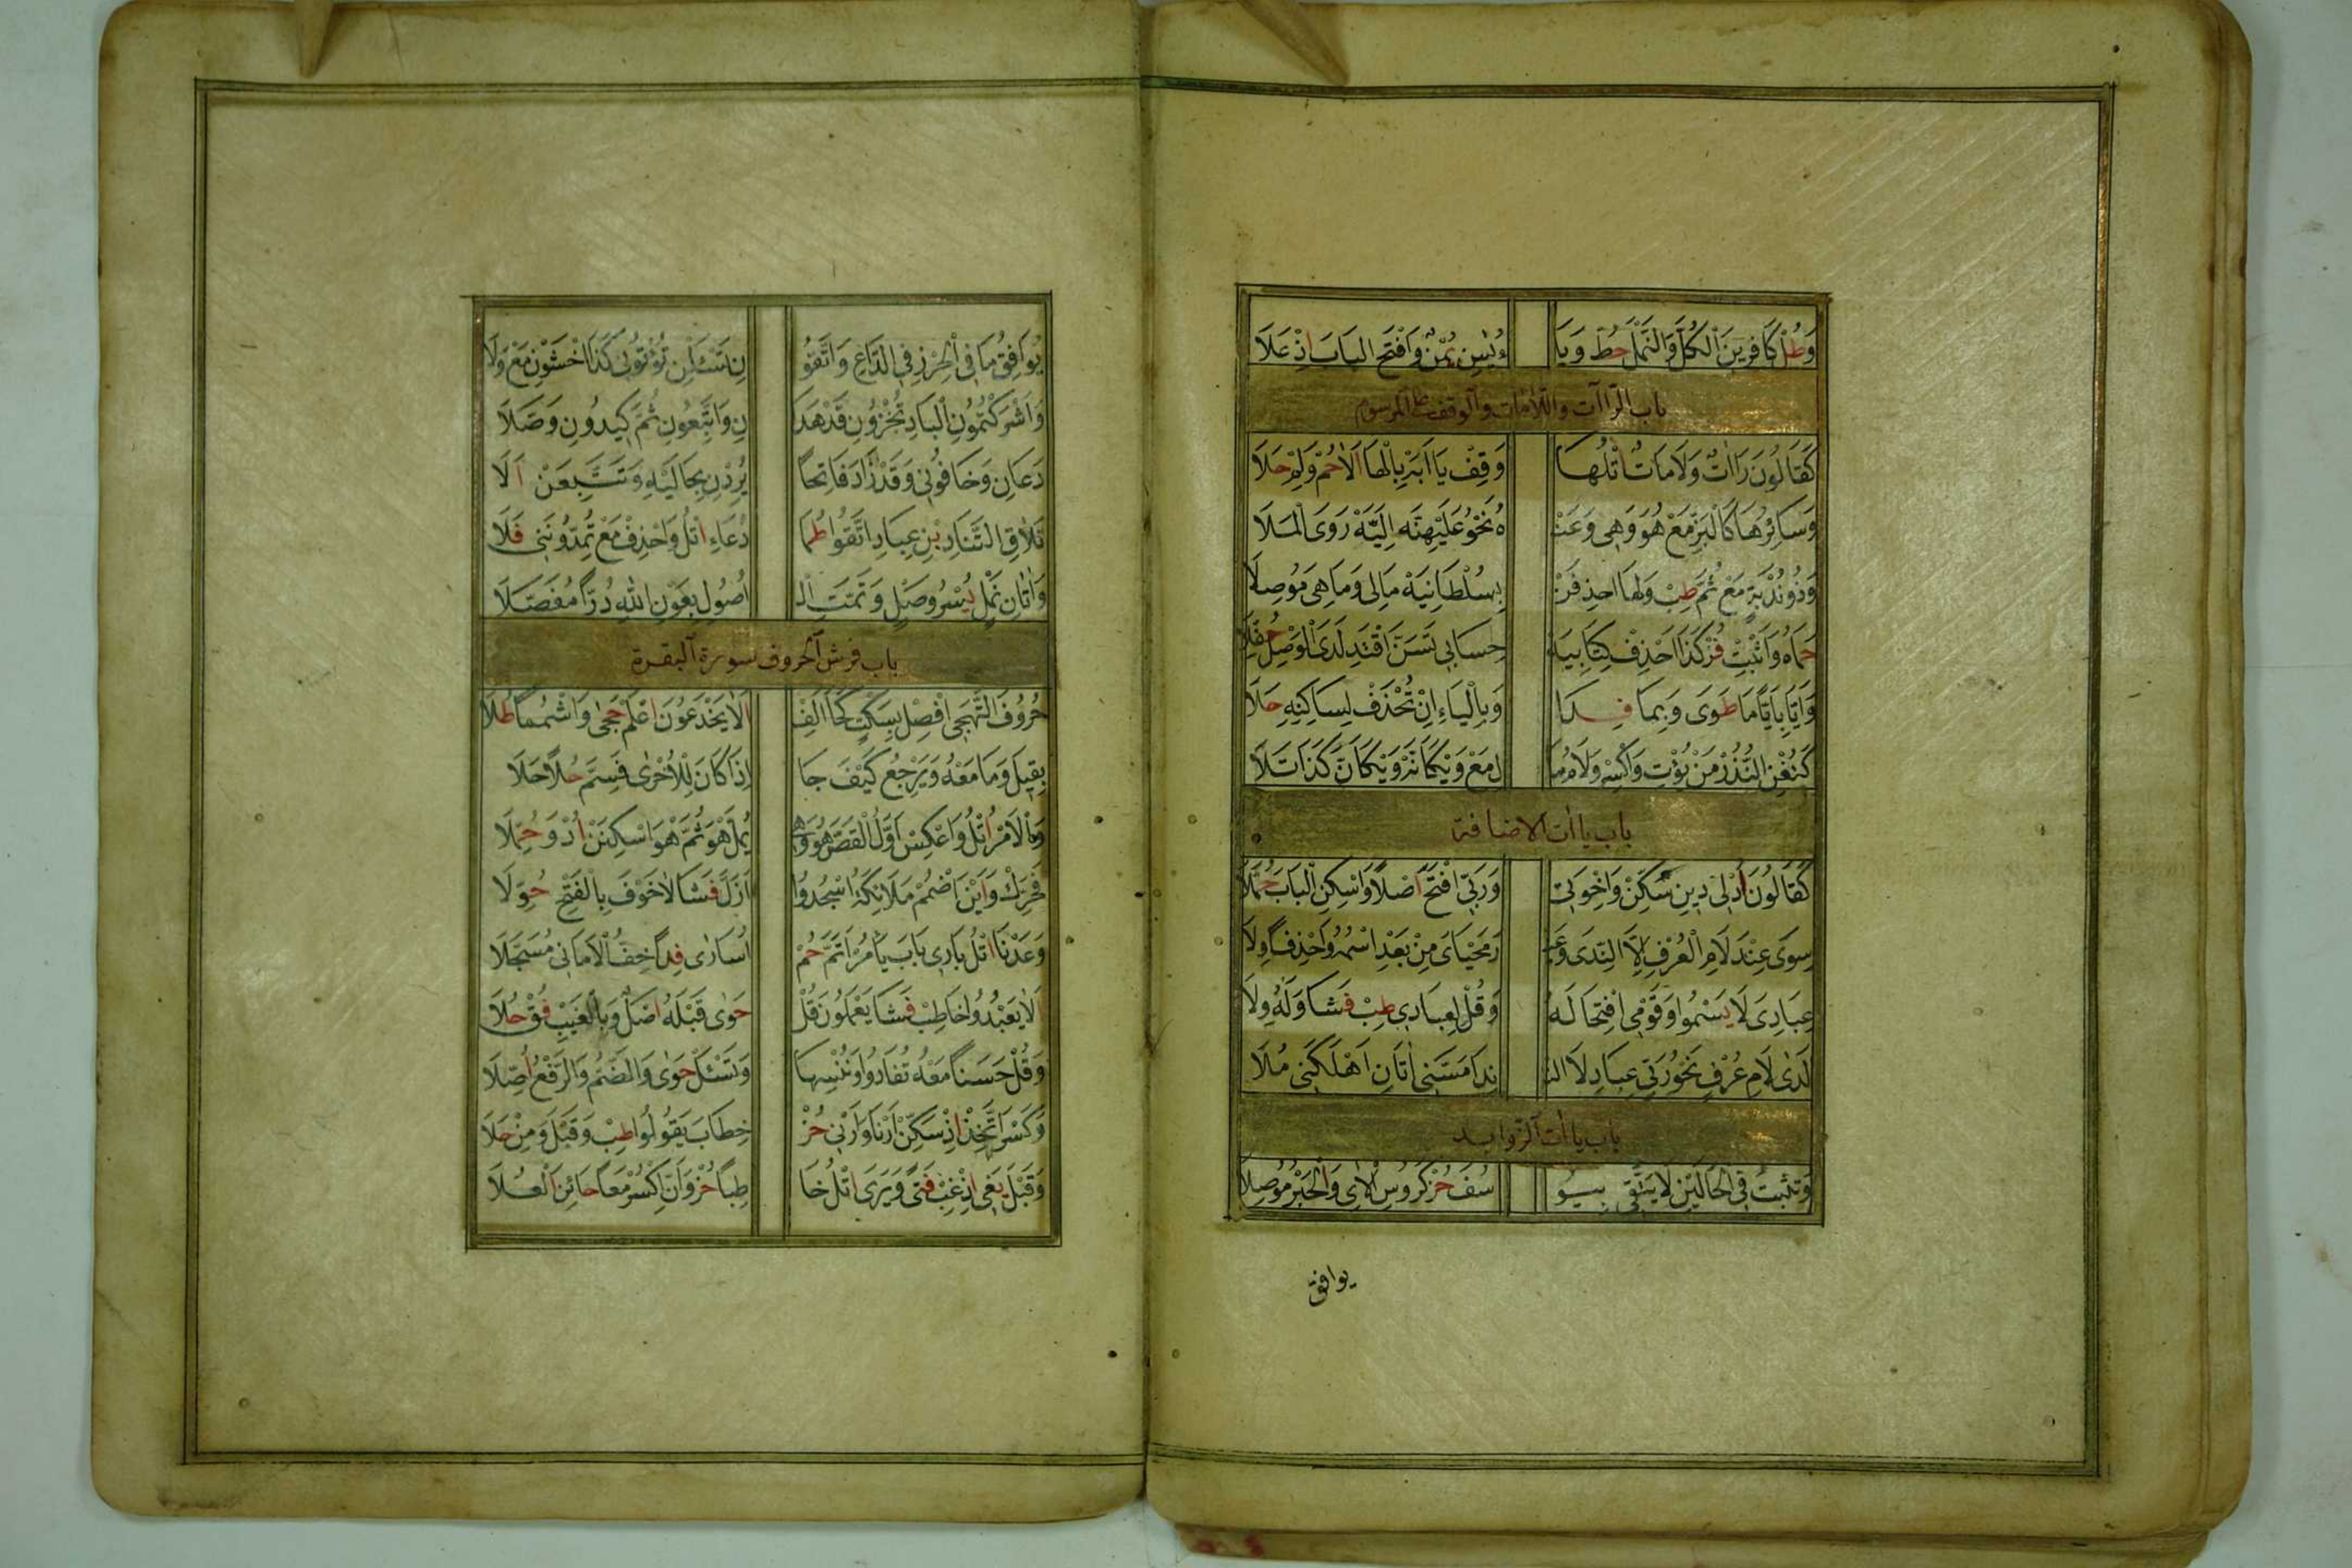 وَطُلْ كَافِرِينَ الْكُلَّ وَالنَّمْلَ حُطْ وَيَا ءُ يٰسِن يُمْنٌ وَافْتَحِ الْبَابَ اِذْ عَلَا
باب الراآت واللامات والوقف على المرسوم
كَقَالُونَ رَاآتٌ وَلَامَاتٌ اتْلُهَا وَقِفْ يَا اَبَهْ بِالْهَا اَلَا حُمْ وَلِمْ حَلَا
وَسَائِرُهَا كَالْبَزِّ مَعْ هُوَ وَهِى وَعَنْ هُ نَحْوُ عَلَيْهُنَّه اِلَيَّهْ رَوَى الْمَلَا
وَذُو نُدْبَةٍ مَعْ ثَمَّ طِبْ وَلِهَا احذِفَنْ بِسُلْطَانِيَهْ مَالِى وَمَاهِى مُوصِلَا
حَمَاهُ وَاَثْبِتْ فُزْ كَذَا احْذِفْ كِتَابِيَهْ حِسَابِى تَسَنَّ اقْتَدِ لَدَى الْوَصْلِ حُفِّلَا
وَاَيًّا بِاَيًّا مَا طَوَى وَبِمَا فِدَا وَبِالْيَاءِ اِنْ تُحْذَفْ لِسَاكِنِهِ حَلَا
كَتُغْنِ النُّذُرْ مَنْ يُؤْتِ وَاكْسِرْ وَلَامُ مَا لِ مَعْ وَيْكَاَنَّهْ وَيْكَاَنَّ كَذَا تَلَا
باب ياات الاضافة
كَقَالُونَ اُدْ لِى دِينِ سَكِّنْ وَاِخْوَتِى وَرَبِّى افْتَحَ اصْلًا وَاسْكِنِ الْبَابَ حُمِّلَا
سِوَى عِنْدَ لَامِ الْعُرْفِ اِلَّا النِّدَى وَغَيْ رَ مَحْيَاىَ مِنْ بَعْدِ اسْمُهُ وَاحْذِفًا وِلَا
عِبَادِىَ لَا يَسْمُوا وَقَوْمِى افْتِحَا لَهُ وَقُلْ لِعِبَادِى طِبْ فَشَا وَلَهُ وِلَا
لَدٰى لَامِ عُرْفٍ نَحْوُ رَبِّى عِبَادِ لَا الن نِدَا مَسَّنِى اٰتَانِ اَهْلَكَنِى مُلَا
باب ياات الزوايد
وَتَثْبُتُ فِى الْحَالَيْنِ لَا يَتَّقِى بِيُو سُفَ حُزْ كَرُوسِ الْاٰىِ وَالْحَبْرُ مُوصِلَا
يوافق
يُوَافِقُ مَا فِى الْحِرْزِ فِى الدَّاعِ وَاتَّقُو نِ تَسْئَلْنِ تُؤْتُونِى كَذَا اخْشَوْنِ مَعْ وَلَا
وَاَشْرَكْتُمُونِ الْبَادِ تُخْزُونِ قَدْ هَدَا نِ وَاتَّبِعُونِ ثُمَّ كِيدُونِ وَصَّلَا
دَعَانِ وَخَافُونِى وَقَدْ زَادَ فَاتِحًا يُرِدْنِ بِحَالَيْهِ وَتَتَّبِعَنْ اَلَا
تَلَاقِ التَّنَادِ بِنْ عِبَادِ اتَّقُوا طُمَا دُعَاءِ اتْلُ وَاحْذِفْ مَعْ تُمِدُّونَنِى فَلَا
وَاٰتَانِ نَمْلٍ يُسْرُ وَصْلٍ وَتَمَّتِ الْ اُصُولُ بِعَوْنِ اللهِ دُرًّا مُفَصَّلَا
باب فرش الحروف سورة البقرة
حُرُوفَ التَّهَجِّى افْصِلْ بِسَكْتٍ كَحَا اَلِفْ اَلَا يَخْدَعُونَ اعْلَمْ حِجًى وَاشْمِمًا طُلَا
بِقِيلَ وَمَا مَعْهُ وَيَرْجِعُ كَيْفَ جَا اِذَا كَانَ لِلْاُخْرٰى فَسَمِّ حُلًا حَلَا
وَالْاَمْرُ اتْلُ وَاعْكِسْ اَوَّلَ الْقَصِّ هُوَ وَهِى يُمِلَّ هْوَ ثُمَّ هْوَ اسْكِنَنْ اُدْ وَحُمِّلَا
فَحَرِّكْ وَاَيْنَ اضْمُمْ مَلَائِكَةُ اسْجُدُوا اَزَلَّ فَشَا لَاخَوْفَ بِالْفَتْحِ حُوِّلَا
وَعَدْنَا اتْلُ بَارِى بَابَ يَامُرْ اَتِمَّ حُمْ اُسَارٰى فِدًا خِفُّ الْاَمَانِى مُسَجَّلَا
اَلَا يَعْبُدُوا خَاطِبْ فَشَا يَعْمَلُونَ قُلْ حَوٰى قَبْلَهُ اَصْلٌ وَبِالْغَيْبِ فُقْ حُلَا
وَقُلْ حَسَنًا مَعْهُ تُفَادُوا وَنُنْسِهَا وَتَسْئَلْ حَوٰى وَالضَّمُّ وَالرَّفْعُ اُصِّلَا
وَكَسْرَ اتَّخِذْ اِذْ سَكِّنْ اَرْنَا وَاَرْنِى حُزْ خِطَابَ يَقُولُوا طِبْ وَقَبْلَ وَمِنْ حَلَا
وَقَبْلَ يَعِى اِذْ غِبْ فَتًى وَيَرَى اتْلُ خَا طِبًا حُزْ وَاَنَّ اكْسِرْ مَعًا حَائِزَ الْعُلَا